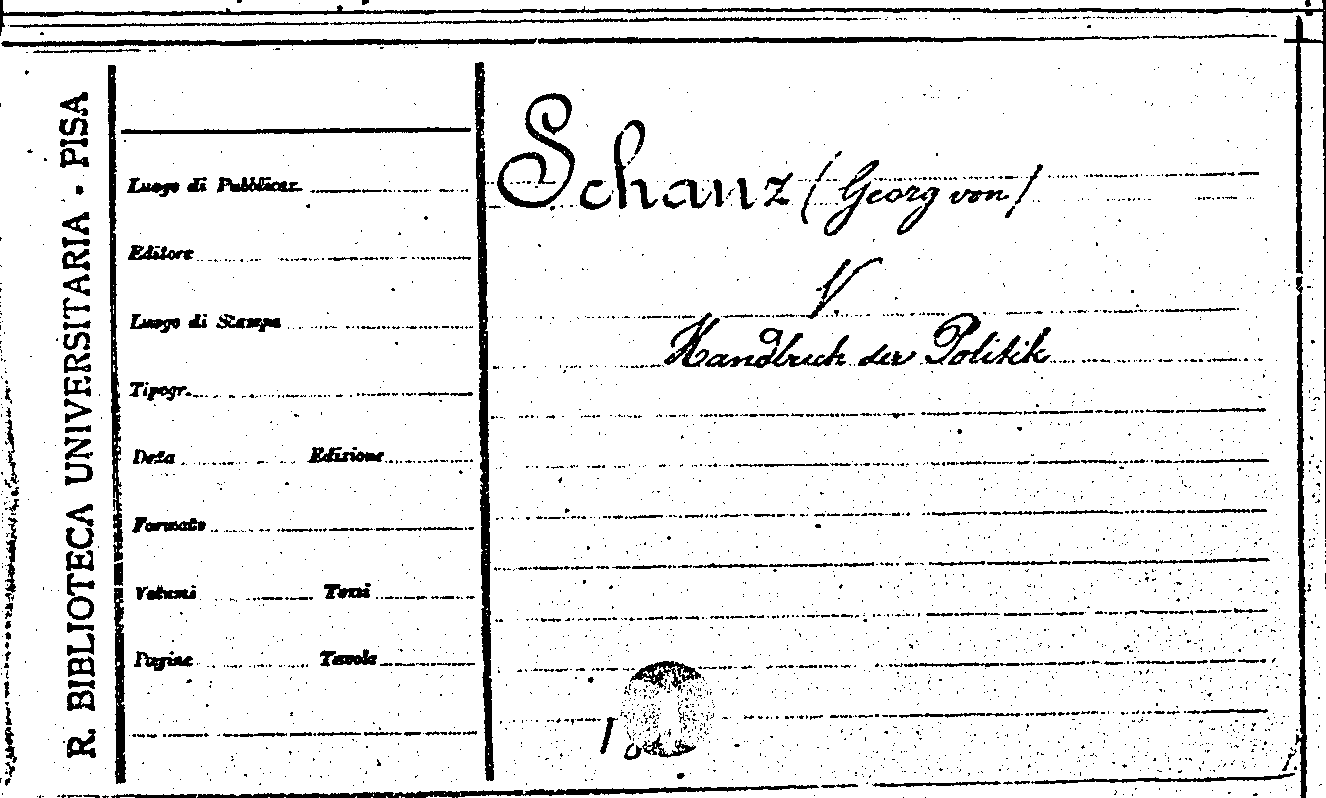 R. BIBLIOTECA UNIVERSITARIA - PISA
Luogo di Pubblicaz.
Editore
Luogo di Stampa
Tipogr.
Data Edizione
Formato
Volumi Tomi
Pagine Tavole
Schanz (Georg von)
V.
Handbuch der Politik